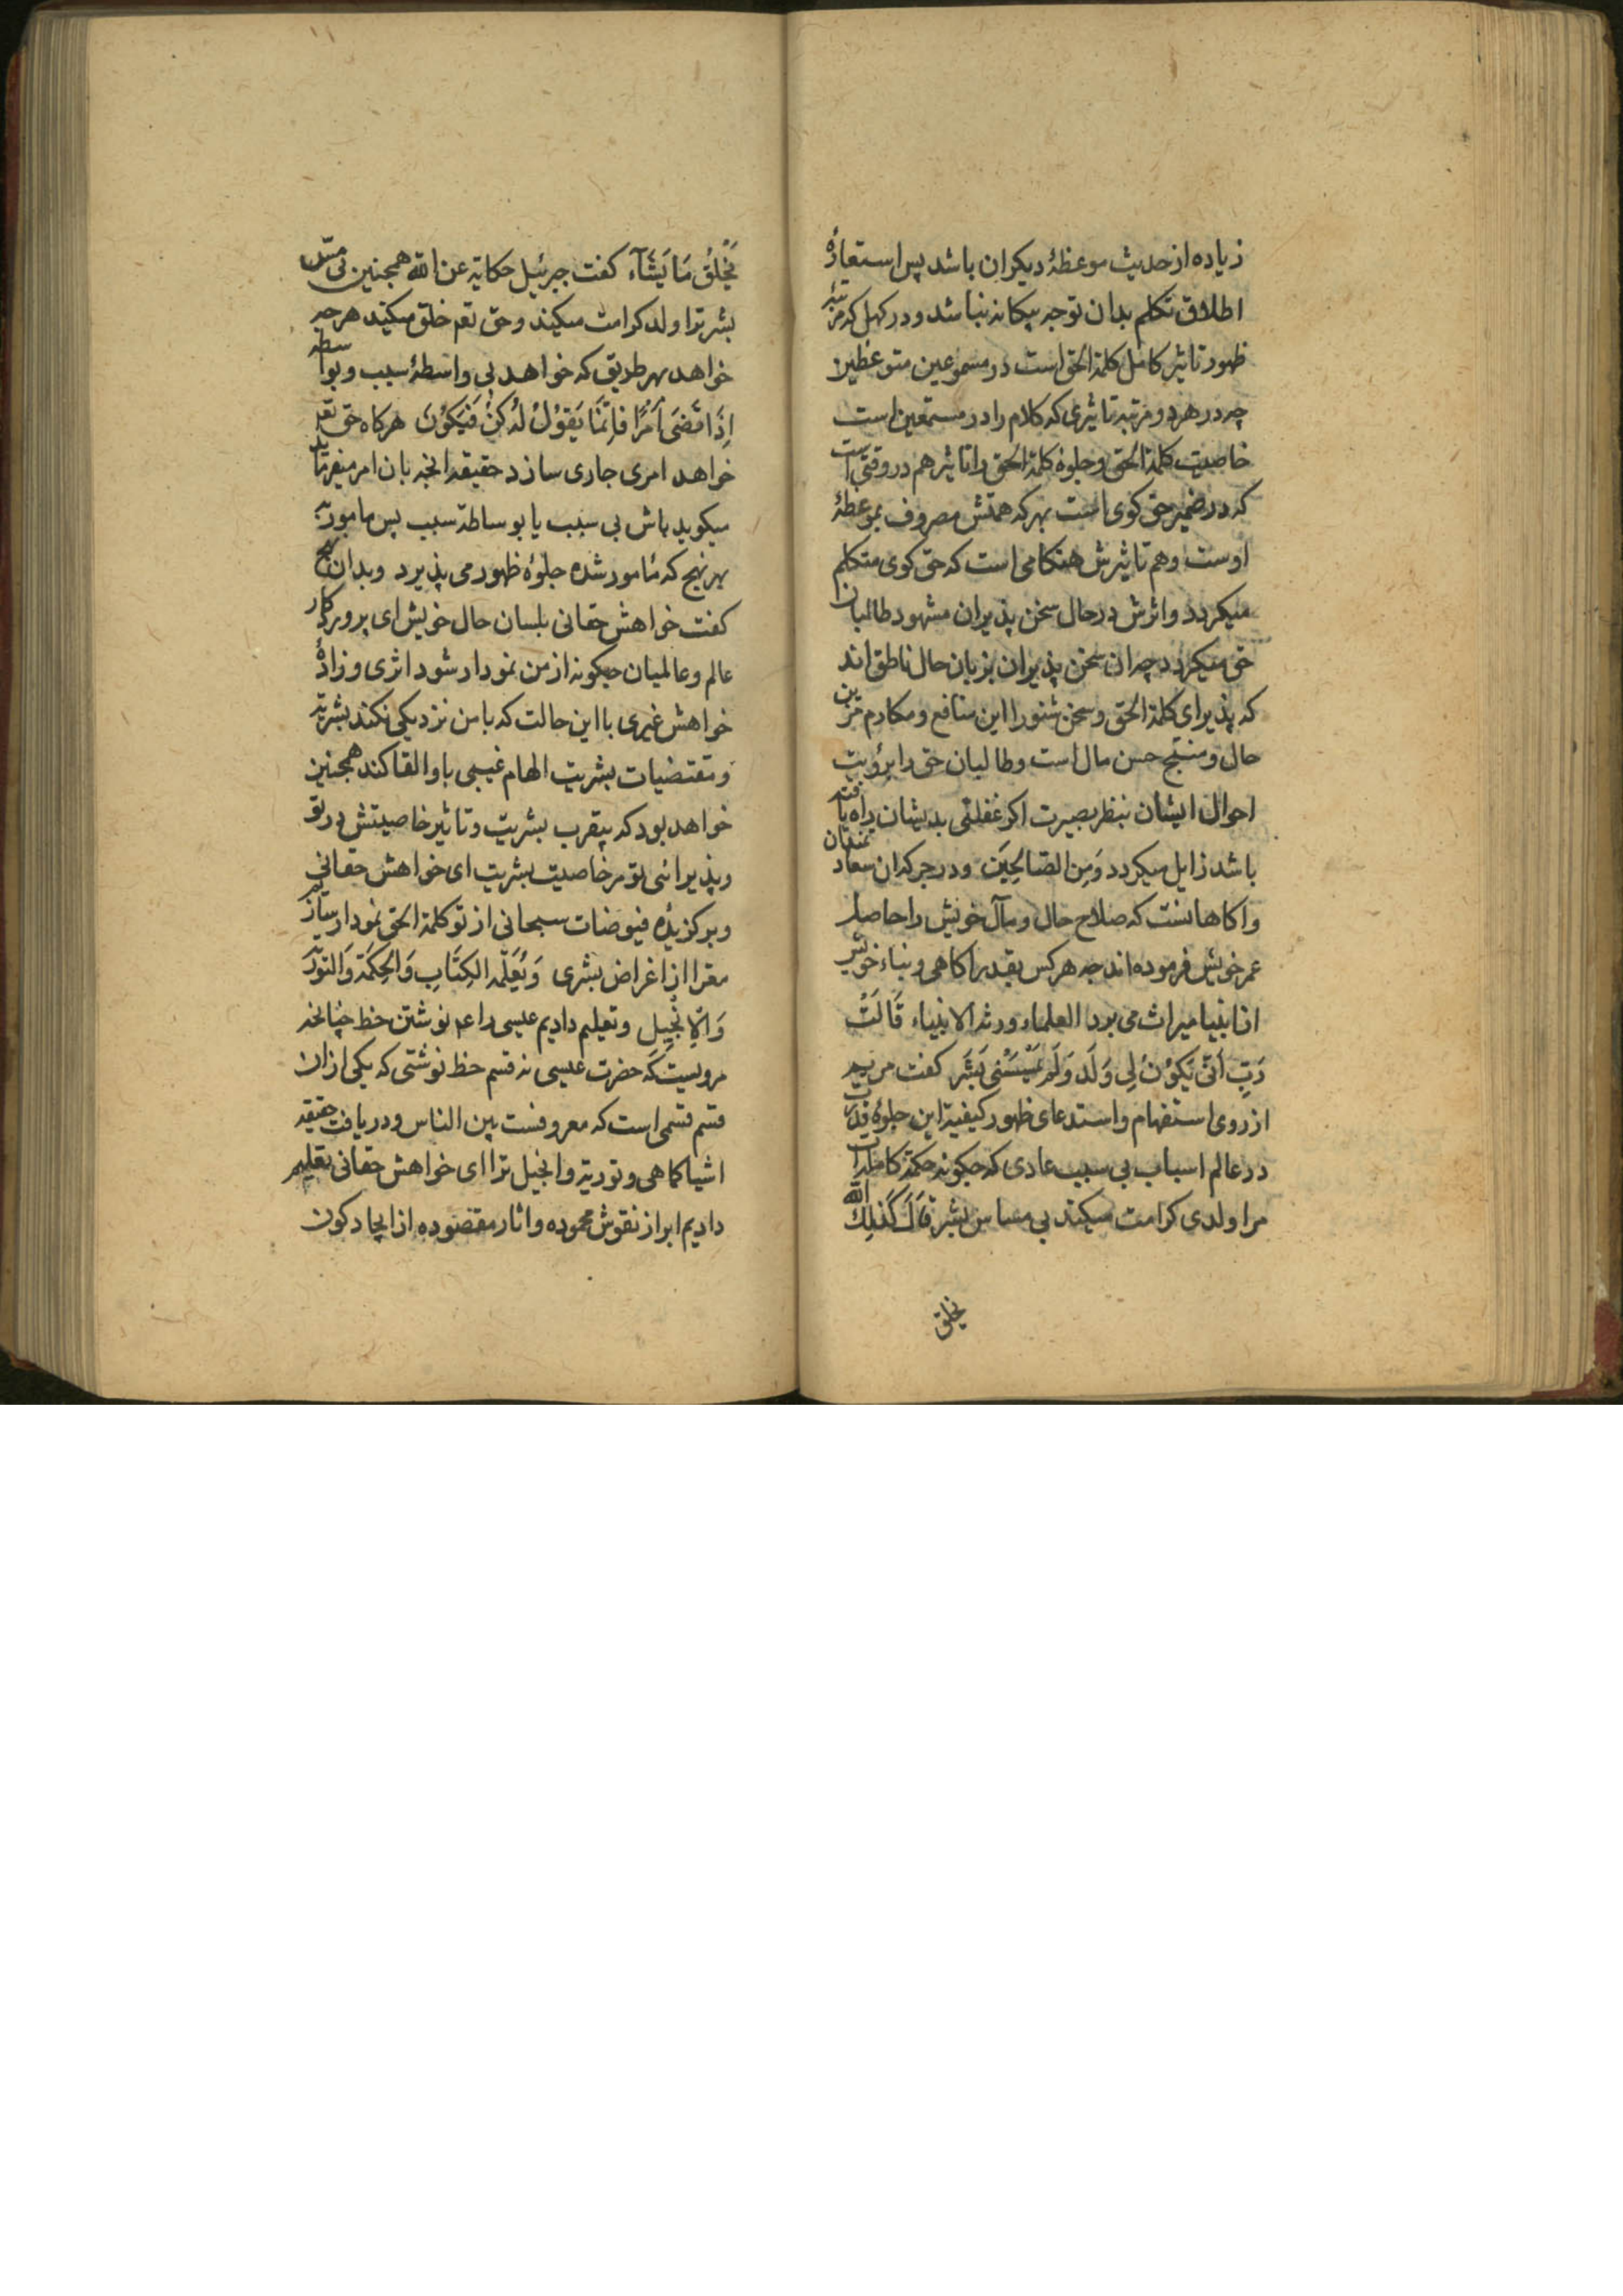 زیاده از حدیث موعظهٔ دیکران باشد پس استعارهٔ
اطلاق تکلم بدان توجه بیکانه نباشد و در کهل که مرتبهٔ
ظهور تاثیر کامل کلمة الحق است در مسموعین متوعظین
چه در هر دو مرتبه تاثیری که کلام را در مستمعین است
خاصیت کلمة الحق و جلوهٔ کلمة الحق را تاثیر هم در وقتی است
که در ضمیر حق کوی است بهر که همتش مصروف بموعظهٔ
اوست و هم تاثیرش هنکامی است که حق کوی متکلم
میکردد و اثرش در حال سخن پذیران مشهود طالبان
حق میکردد چه ان سخن پذیران بزبان حال ناطق اند
که پذیرای کلمة الحق و سخن شنو را این منافع و مکارم مزین
حال و منتج حسن مال است و طالبان حق را برؤیت
احوال ایشان بنظر بصیرت اکر غفلتی بدیشان راه یافته
باشد زایل میکردد وَمِنَ الصَّالِحِینَ و در جرکه ان سعادتمندان
و اکاهانست که صلاح حال و مآل خویش را حاصل
عمر خویش فرموده اند چه هر کس بقدر اکاهی و بناء خویش
از انبیا میراث می برد العلماء ورثة الانبیاء قَالَتْ
رَبِّ أَنَّی یَکُونُ لِی وَلَد وَلَمْ یَمْسَسْنِی بَشَر کفت مریم
از روی استفهام و استدعای ظهور کیفیة این جلوهٔ قدرت
در عالم اسباب بی سبب عادی که چکونه حکمة کامله ات
مرا ولدی کرامت میکند بی مساس بشر قَالَ کَذَلِكَ الله
یخلق
یَخْلُقُ مَا یَشَآء کفت جبرئیل حکایة عن الله همچنین بی مسّ
بشر ترا ولد کرامت میکند و حق تعم خلق میکند هر چه
خواهد بهر طریق که خواهد بی واسطهٔ سبب و بواسطه
إِذَا قَضَی أَمْرًا فَإِنَّمَا یَقُولُ لَهُ کُنْ فَیَکُونُ هرکاه حق تعم
خواهد امری جاری سازد حقیقه انچه بان امر میفرماید
میکوید باش بی سبب یا بوساطة سبب پس مامور به
بهر نهج که مٔامور شده جلوهٔ ظهور می پذیرد و بدان نهج
کفت خواهش حقانی بلسان حال خویش ای پروردکار
عالم و عالمیان چکونه از من نمودار شود اثری و زادهٔ
خواهش غیری با این حالت که با من نزدیکی نکند بشریة
و مقتضیات بشریت الهام غیبی با و القا کند همچنین
خواهد بود که بیقرب بشریت و تاثیر خاصیتش در تو
و پذیرائی تو مر خاصیت بشریت ای خواهش حقانی
و برکزیدهٔ فیوضات سبحانی از تو کلمة الحق نمودار سازیم
معرا از اغراض بشری وَیُعَلِّمُه الکِتَابَ وَالحِکمَة وَالتَورَیة
وَالإِنْجِیل و تعلیم دادیم عیسی را عم نوشتن خط چنانچه
مرویست که حضرت عیسی نه قسم خط نوشتی که یکی از ان
قسم قسمی است که معروفست بین الناس و دریافت حقیقه
اشیا کما هی و توریة و انجیل ترا ای خواهش حقانی تعلیم
دادیم ابراز نقوش محموده و اثار مقصوده از ایجاد کون